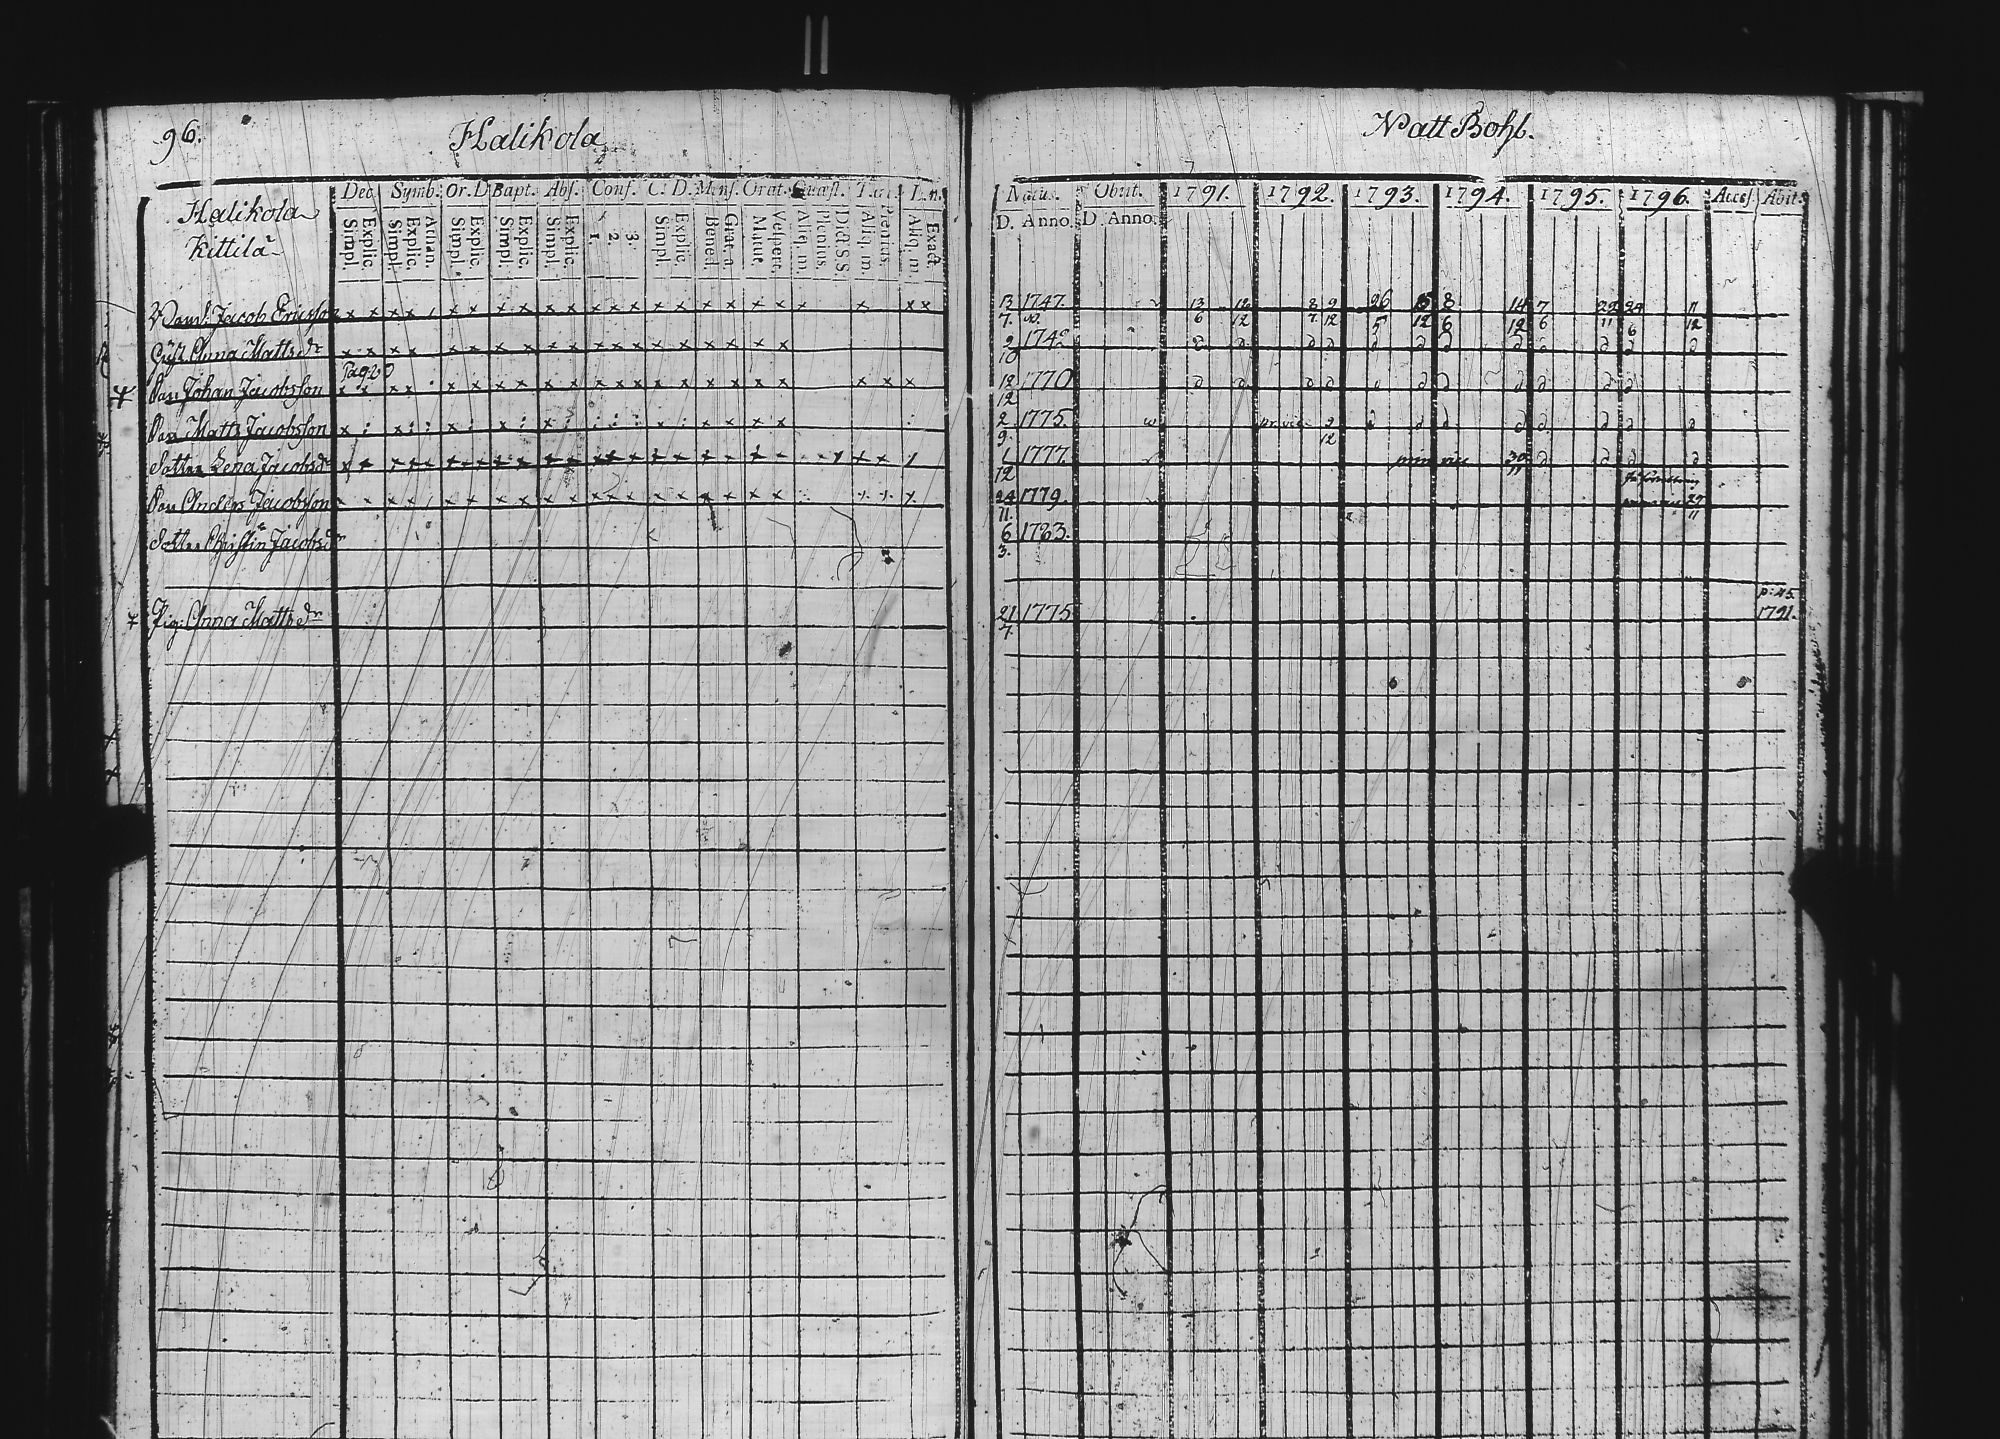 96. Halikola Natt Bohl.
Halikola
Kittilä
Dec. Symb. Or. D. Bapt. Abs. Conf. C. D. Mens. Orat. Quæst. L. n.
Simpl. Explic. Simpl. Explic. Athan. Simpl. Explic. Simpl. Explic. Simpl. Explic. 1. 2. 3. Simpl. Explic. Bened. Grat. a. Matut. Vespert. Aliq. m. Plenius. Dict. S. S. Aliq. m. Plenius. Aliq. m. Exact.
Natus. Obiit. 1791. 1792. 1793. 1794. 1795. 1796. Access. Abiit.
D. Anno. D. Anno.
Jacob Ericsson x x x x x x x x x x x x x x x x x x x x x x x 13 7. 1747. 13 6 12 12 8 7. 9 12 26 5 15 12 8 6 14 12 7 6 22 11 24 6 11 12
Anna Mattsdr x x x x x x x x x x x x x x x x x x x 9 10 1742
Pag: 20
Son Johan Jacobsson x x x x x x x x x x x x x x x x x x x x x x 18 12 1770
Son Matts Jacobsson 2 9. 1775. 9 12
Dotter Lena Jacobsdr 1 12 1777. prim vice 30 11
Son Anders Jacobsson 24 11. 1779. 27 11
Dotter Christin Jacobsdr 6 3. 1783.
p: 45.
Pig: Anna Mattsdr 21 7. 1775 1791.